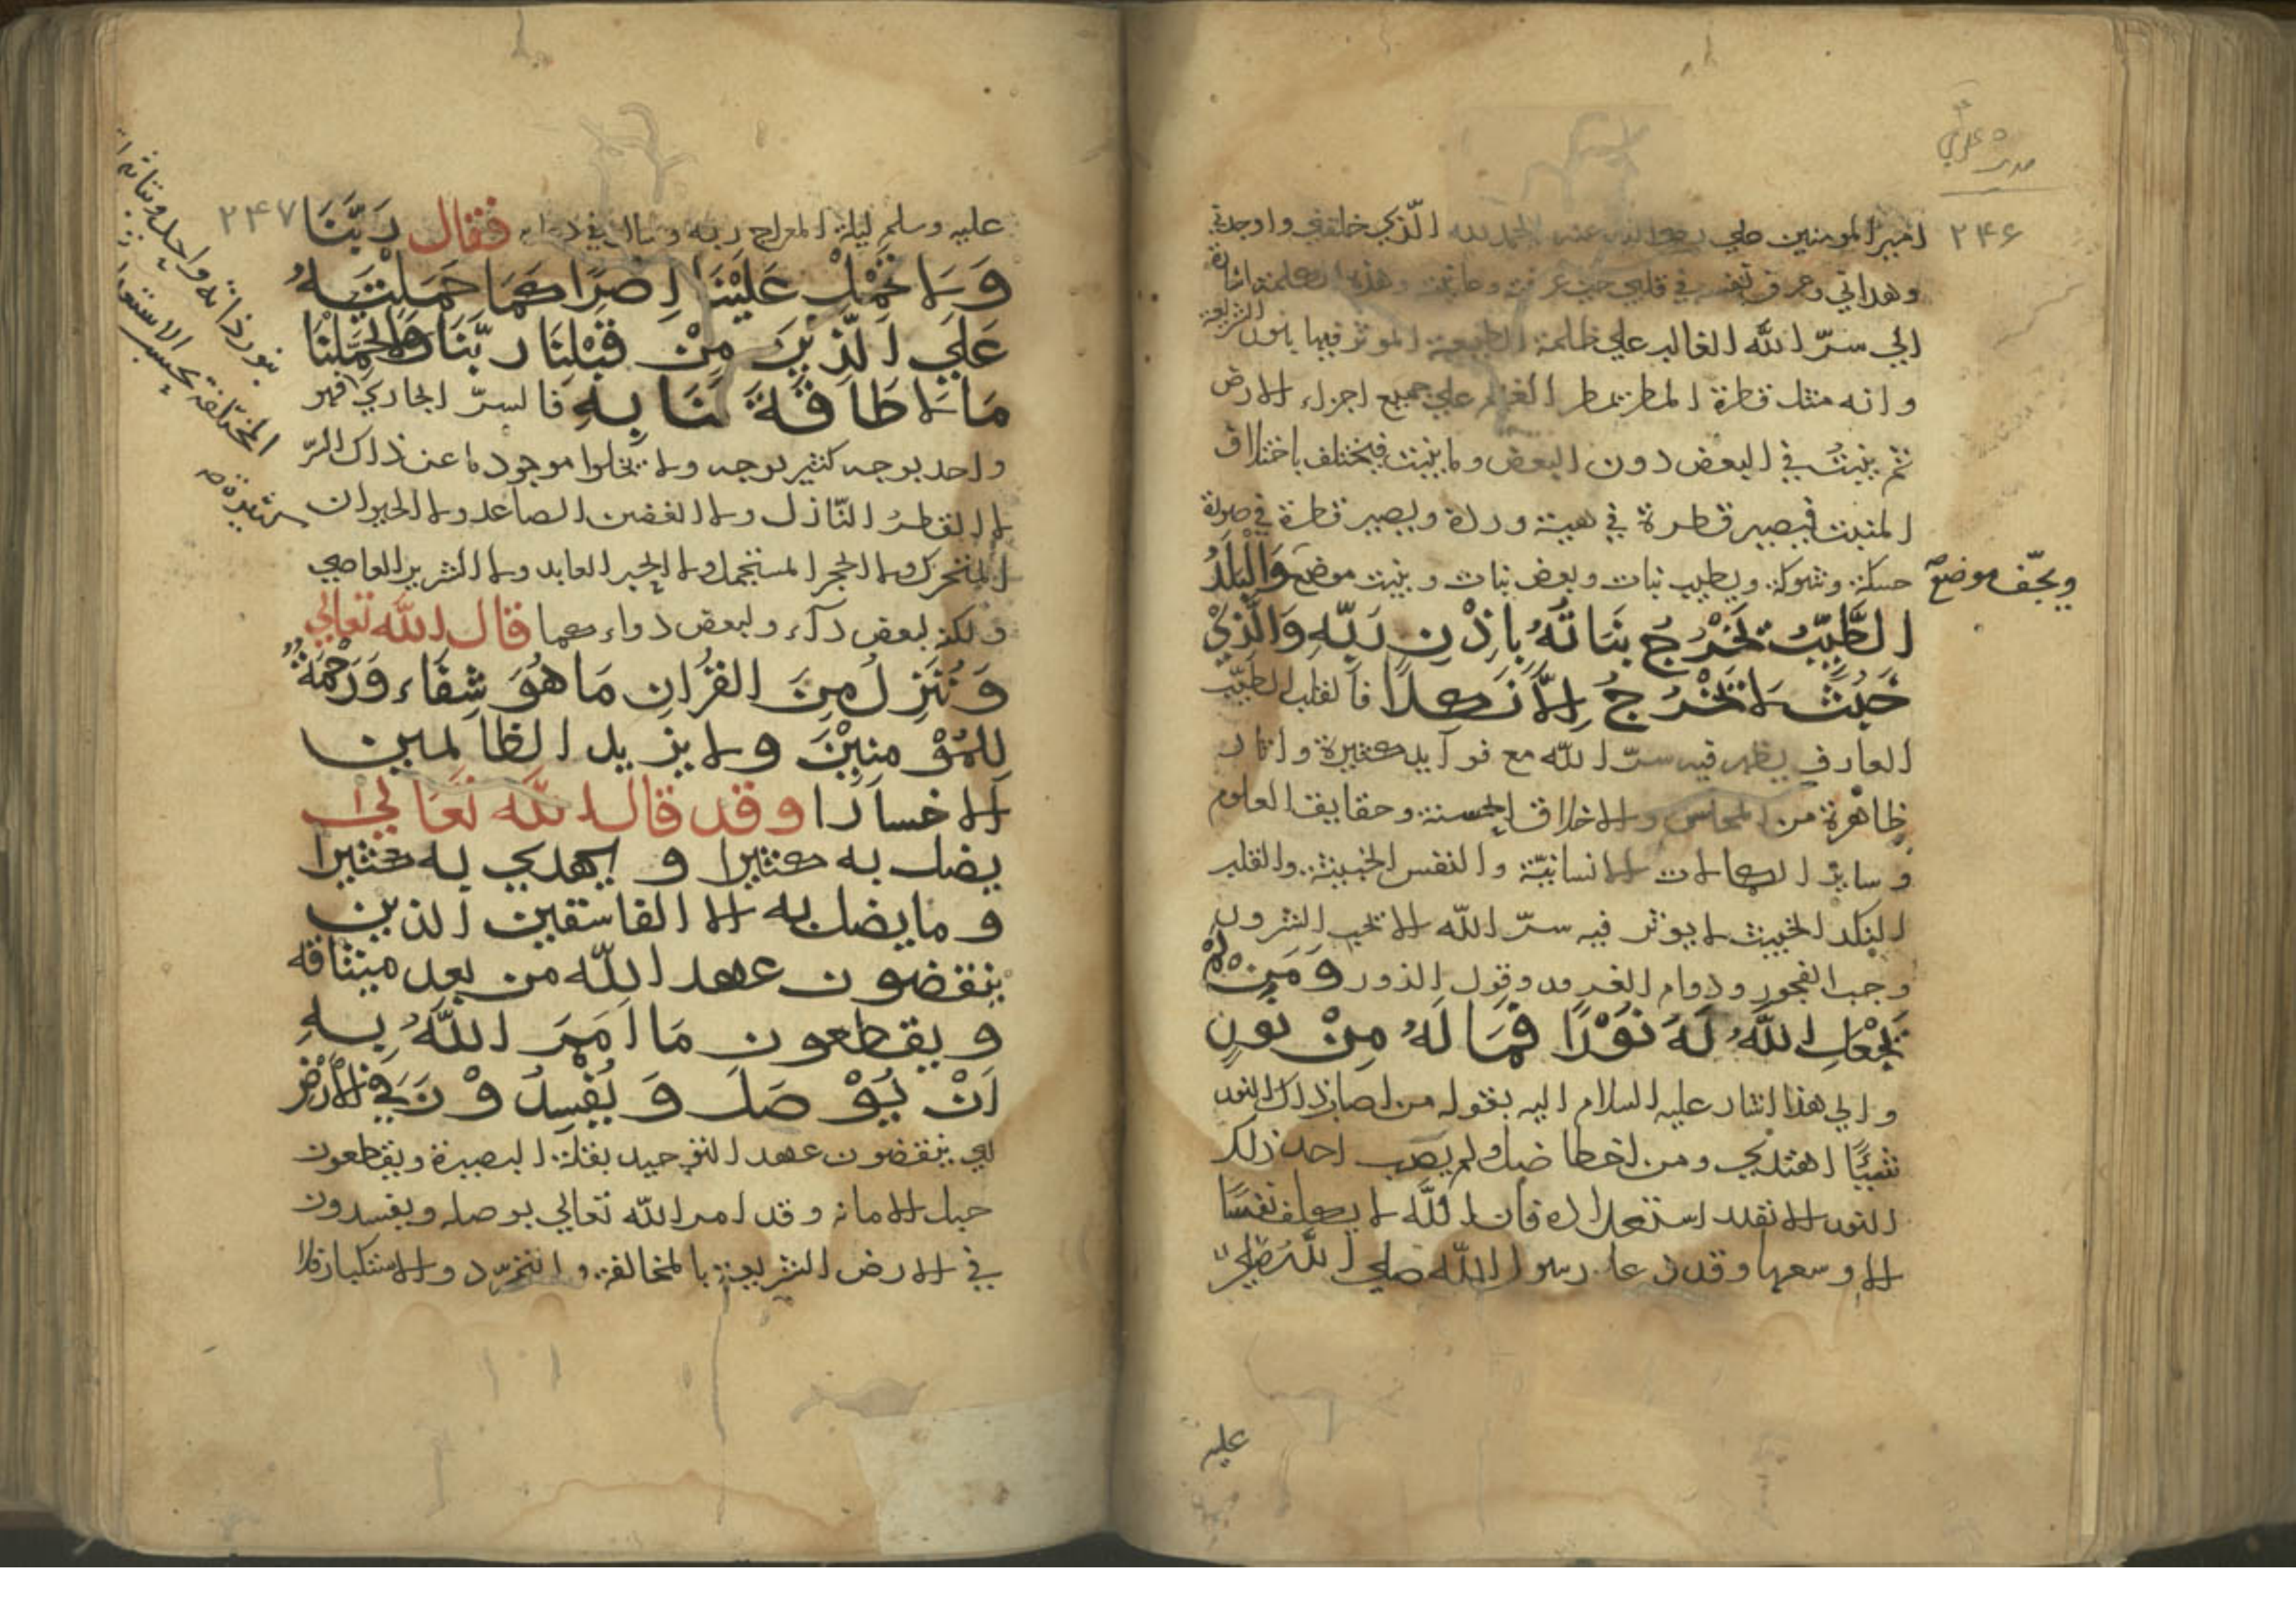 ٢۴۶
امير المومنين علي الحمد لله الذي خلقني واوجدني
وهداني وعرف نفسه في قلبي وهذه الكلمة اشارة
الي سرّ الله الغالب علي ظلمة الطبيعة الموثر فيها بنور الشريعة
وانه مثل قطرة المطر يمطر الغمام علي جميع اجزاء الارض
ثم ينبت في البعض دون البعض وما ينبت فيختلف باختلاف
المنبت فيصير قطرة في هيئة وردة ويصير قطرة في صورة
حسكة وشوكة ويطيب نبات وبعض نبات وينبت موضع وَالْبَلَدُ
ويجفّ موضع
الطَّيِّبُ يَخْرُجُ نبَاتَهُ بِاِذْنِ رَبِّهِ وَالَّذِيْ
خَبُثَ لَا يَخْرُجُ اِلَّا نَكِدًا فالقلب الطيّب
العارف يظهر فيه سرّ الله مع فوآيد كثيرة واثار
ظاهرة من المحاسن والاخلاق الحسنة وحقايق العلوم
وساير الكمالات الانسانيّة والنفس الخبيثة والقلب
النكد الخبيث لا يوثر فيه سرّ الله الا بحب الشرور
وحب الفجور ودوام الغرور وقول الزور وَمَنْ لَمْ
يَجْعَلِ اللّهُ لَهُ نُوْرًا فَمَا لَهُ مِنْ نورٍ
والي هذا اشار عليه السلام اليه بقوله من اصابه ذلك النور
شيئًا اهتدي ومن اخطا ضل ولم يصب احد ذلك
النور الا بقدر استعداده فان اللّه لا يكلف نفسًا
الا وسعها وقد دعا رسول اللّه صلي اللّه
عليه
٢۴٧
عليه وسلم ليلة المعراج ربه فقال رَبَّنَا
وَلَا تَحْمِلْ عَلَيْنَا اِصْرًا كَمَا حَمَلْتَهُ
عَلَي الَّذِيْنَ مِنْ قَبْلِنَا رَبَّنَا وَلَا تُحَمِّلْنَا
مَا لَا طَاقَةَ لَنَا بِهِ فالسرّ الجاري فهو
واحد بوجه كثير بوجه ولا يخلوا موجود ما عن ذلك السرّ
لا القطر النّازل ولا الغصن الصاعد ولا الحيوان
المتحرك ولا الحجر المستجمل ولا الحبر العابد ولا الشرير العاصي
ولكن لبعض دآء ولبعض دواء كما قال الله تعالي
وَنُنَزِلُ مِنَ القُرْانِ مَا هُوَ شِفَاء وَرَحْمَةٌ
لِلمُؤْمنِيْنَ ولا يزيد الظالمين
الا خسارا وقد قال الله تَعَالي
يضل به كثيرا و يهدي به كثيرا
وما يضل به الا الفاسقين الذين
ينقضون عهد اللّه من بعد ميثاقه
ويقطعون مَا اَمَرَ اللّهُ بِهِ
اَنْ يُوْصَلَ وَيُفْسِدُوْنَ فِي الْاَرْضِ
اي ينقضون عهد التوحيد بقلة البصيرة ويقطعون
حبل الامانه وقد امر اللّه تعالي بوصله ويفسدون
في الارض الشريعة بالمخالفة والتمرّد والاستكبار
بنور ذاته واحد
المختلفة بحسب الاستعدا
كثيرة